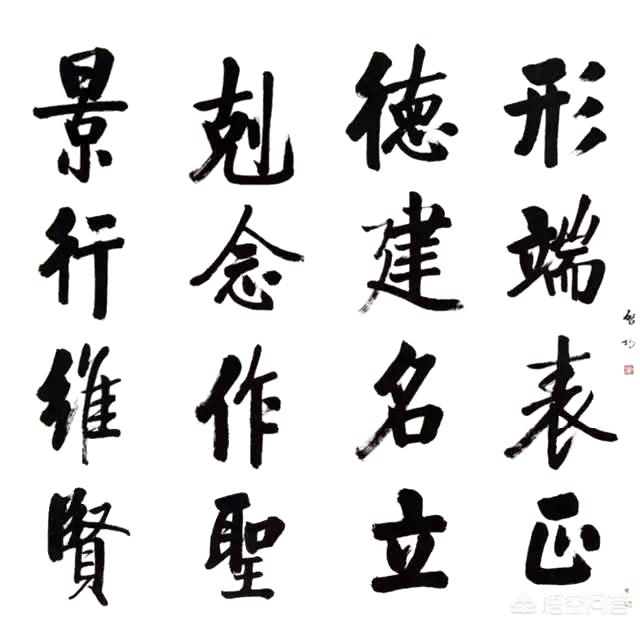 景行維賢
剋念作聖
德建名立
形端表正
启功
悟空问答